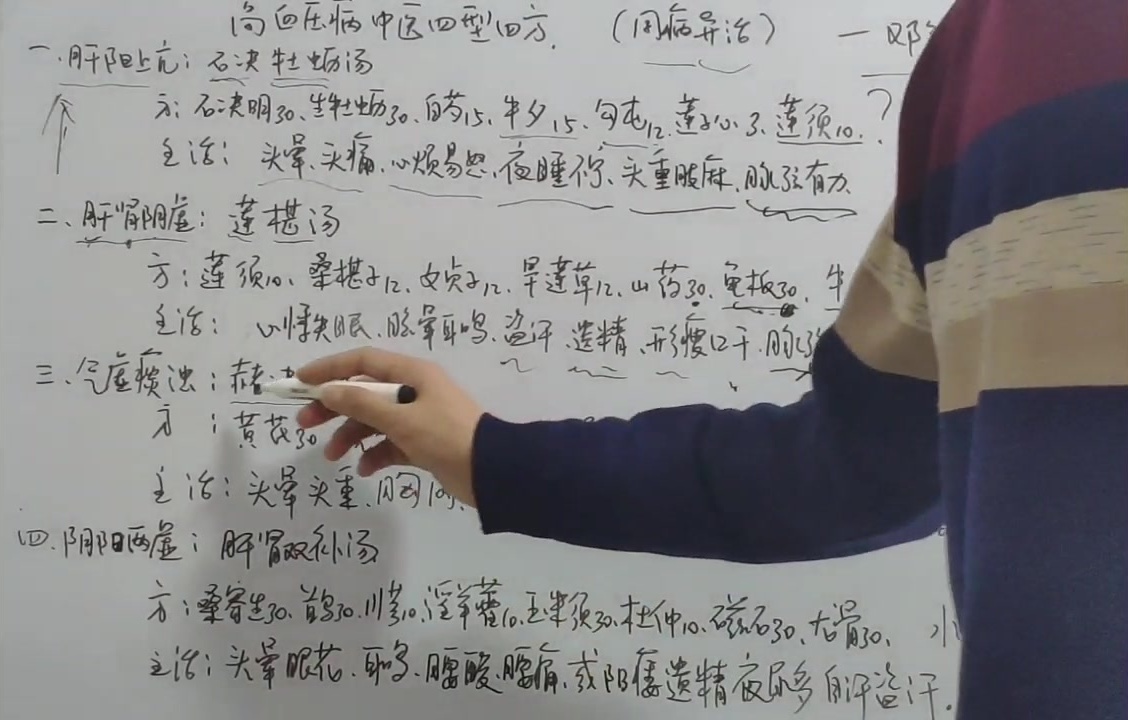 高血压病中医四型四方. (同病异治) 一 邓
一.肝阳上亢: 石决牡蛎汤
方: 石决明30、生牡蛎30、白芍15、牛夕15、勾屯12、莲子心3、莲须10.
主治: 头晕、头痛、心烦易怒、夜睡不宁、头重肢麻、脉弦有力
二、肝肾阴虚: 莲椹汤
方: 莲须10、桑椹子12、女贞子12、旱莲草12、山药30、龟板30、牛
主治: 心悸失眠、眩晕耳鸣、盗汗、遗精、形瘦口干、脉弦
三、气虚痰浊: 赭决
方: 黄芪30
主治: 头晕头重、胸闷、
四.阴阳两虚: 肝肾双补汤
方: 桑寄生30、首乌30、川芎10、淫羊藿10、玉米须30、杜仲10、磁石30、龙骨30、
主治: 头晕眼花、耳鸣、腰酸、腰痛、或阳痿遗精夜尿多 自汗盗汗.